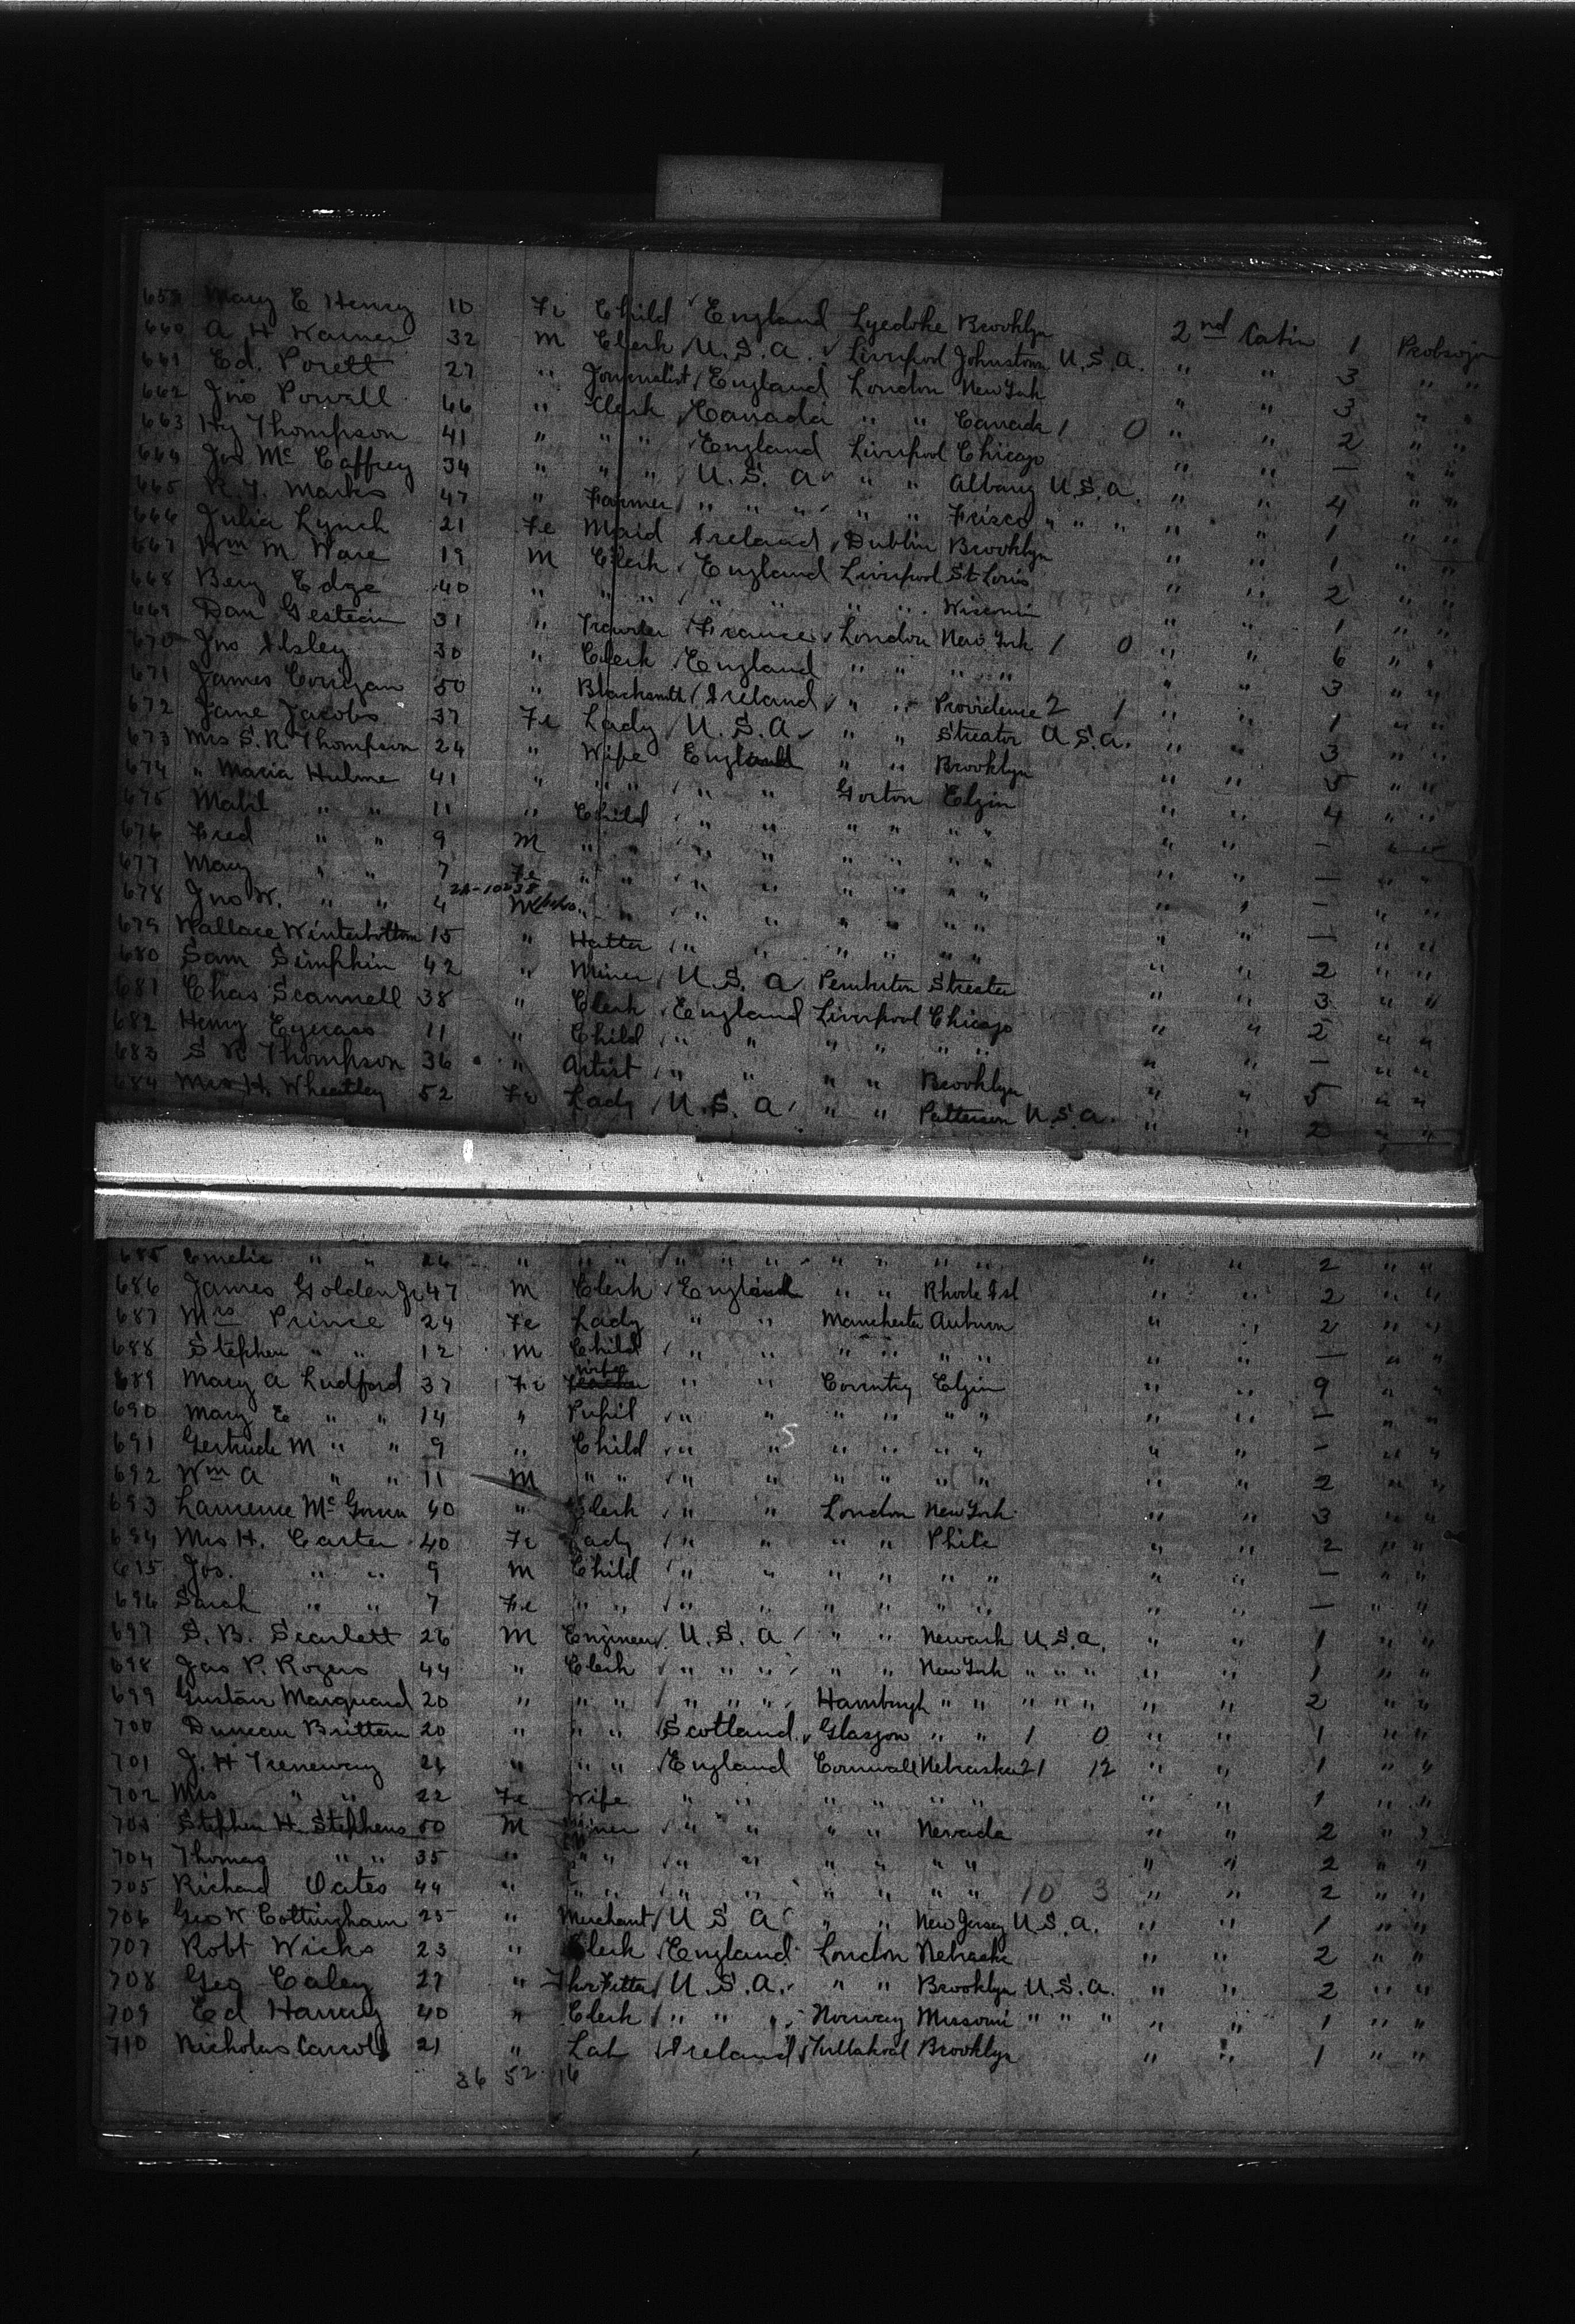 659 Mary E Henry 10 Fe Child England Lyedoke Brooklyn 2nd Cabin 1
660 A H Warner 32 M Clerk U.S.A. Liverpool Johnstown U.S.A. " " 3 " "
661 Ed. Porett 27 " Journalist England London New York " " 3 " "
662 Jno Powell 66 " Clerk Canada " " Canada 1 0 " " 2 " "
663 Hy Thompson 41 " " " England Liverpool Chicago " " — " "
664 Jos Mc Caffrey 34 " " " U.S. A " " Albany U.S.A. " " 4 " "
665 R. T. Marks 47 " Farmer " " " " " Frisco " " " " " 1 " "
666 Julia Lynch 21 Fe Maid Ireland Dublin Brooklyn " " 1 " "
667 Wm M. Ware 19 M Clerk England Liverpool St Louis " " 2 " "
668 Benj Edge 40 " " " " " " " " " 1 " "
669 Dan Gestein 31 " Traveler France London New York 1 0 " " 6 " "
670 Jno Ilsley 30 " Clerk England " " " " " " 3 " "
671 James Corrigan 50 " Blacksmith Ireland " " Providence 2 1 " " 1 " "
672 Jane Jacobs 37 Fe Lady U.S.A. " " Streator U.S.A. " " 3 " "
673 Mrs S. R. Thompson 24 " Wife England " " Brooklyn " " 5 " "
674 " Maria Hulme 41 " " " " " Gorton Elgin " " 4 " "
675 Mabil " " 11 " Child " " " " " " " " — " "
676 Fred " " 9 M " " " " " " " " " " — " "
677 Mary " " 7 Fe " " " " " " " " " " — " "
678 Jno W. " " 4 M " " " " " " " " " " — " "
679 Wallace Winterbottom 15 " Hatter " " " " " " " " 2 " "
680 Sam Simpkin 42 " Miner U.S. A Pemberton Streator " " 3 " "
681 Chas Scannell 38 " Clerk England Liverpool Chicago " " 2 " "
682 Henry 11 " Child " " " " " " " " — " "
683 S R Thompson 36 " Artist " " " " Brooklyn " " 5 " "
684 Mrs H. Wheatley 52 Fe Lady U.S. A " " Patterson U.S.A. " " 2 " "
685 Emelie " " 26 " " " " " " " " " " " " 2 " "
686 James Golden Jr 47 M Clerk England " " Rhode Isl " " 2 " "
687 Mrs Prince 24 Fe Lady " " Manchester Auburn " " 2 " "
688 Stephen " " 12 M Child " " " " " " " " — " "
689 Mary A Ludford 37 Fe wife " " Coventry Elgin " " 9 " "
690 Mary E " " 14 " Pupil " " " " " " " " — " "
691 Gertrude M " " 9 " Child " " " " " " " " — " "
692 Wm A " " 11 M " " " " " " " " " " 2 " "
693 Laurence Mc 40 " Clerk " " London New York " " 3 " "
694 Mrs H. Carter 40 Fe Lady " " " " Phila " " 2 " "
695 Jos. " " 9 M Child " " " " " " " " — " "
696 Sarah " " 7 Fe " " " " " " " " " " — " "
697 S. B. Scarlett 26 M Engineer U.S. A " " Newark U.S.A. " " 1 " "
698 Jas P. Rogers 44 " Clerk " " " " " New York " " " " " 1 " "
699 Gustav Marquard 20 " " " " " " Hamburgh " " " " " " " 2 " "
700 Duncan Brittern 20 " " " Scotland Glasgow " " 1 0 " " 1 " "
701 J. H Treneway 24 " " " England Cornwall Nebraska 21 12 " " 1 " "
702 Mrs " " 22 Fe Wife " " " " " " " " 1 " "
703 Stephen H. Stephens 50 M Miner " " " " Nevada " " 2 " "
704 Thomas " " 35 " " " " " " " " " " " 2 " "
705 Richard Oates 44 " " " " " " " " " 10 3 " " 2 " "
706 Geo W Cottingham 25 " Merchant U S A " " New Jersey U.S.A. " " 1 " "
707 Robt Wicks 23 " Clerk England London Nebraska " " 2 " "
708 Geo Caley 27 " U.S.A. " " Brooklyn U.S.A. " " 2 " "
709 Ed Harvey 40 " Clerk " " " Norway Missouri " " " " " 1 " "
710 Nicholas Carroll 21 " Lab Ireland Brooklyn " " 1 " "
36 52 16